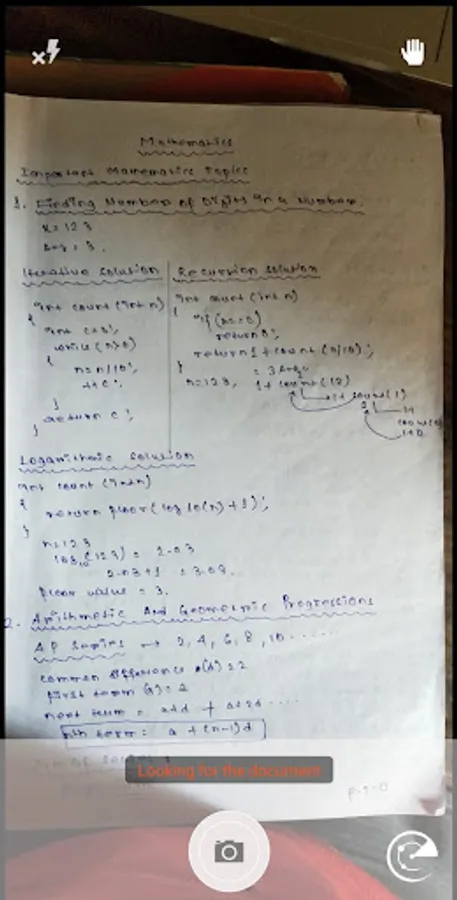 Mathematics
Important Mathematics Topics
1. Finding Number of Digits in a Number.
x = 123
Ans = 3.
Iterative solution
int count (int n)
{
int c=0;
while (n>0)
{
n = n/10;
++c;
}
return c;
}
Recursion solution
int count (int n)
{
if (n==0)
return 0;
return 1 + count (n/10);
}
= 3 Ans
n=123, 1 + count (12)
1+ count (1)
1+
count (0)
1+0
Logarithmic solution
int count (int n)
{
return floor (log 10(n) + 1);
}
n=123
log10(123) = 2.03
2.03+1 = 3.08.
floor value = 3.
2. Arithmetic And Geometric Progressions
AP Series → 2, 4, 6, 8, 10 ......
common difference (d) = 2
first term (a) = 2
next term = a+d + a+2d ....
nth term = a + (n-1)d
Looking for the document
P.T.O